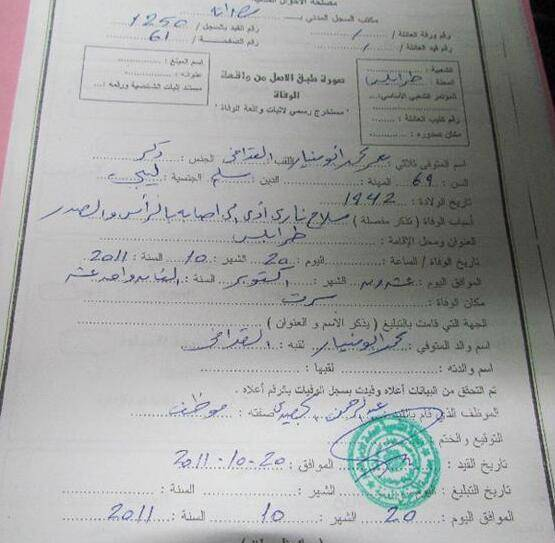 مصلحة الأحوال المدنية
مكتب السجل المدني بـ
رقم ورقة العائلة / رقم القيد بالسجل / 1250
رقم قيد العائلة / رقم الصفحة 61
الشعبية :
المحلة : طرابلس
المؤتمر الشعبي الأساسي :
رقم كتيب العائلة :
مكان صدوره :
صورة طبق الاصل من واقعة
الوفاة
" مستخرج رسمي لاثبات واقعة الوفاة "
اسم المبلغ :
عنوانه :
مستند إثبات الشخصية ورقمه :
اسم المتوفي ثلاثي معمر محمد ابومنيار اللقب القذافي الجنس : ذكر
السن : 69 المهنة : الدين : مسلم الجنسية : ليبي
تاريخ الولادة : 1942
أسباب الوفاة ( تذكر مفصلة ) سلاح ناري أدى إلى اصابه بالرأس والصدر
العنوان ومحل الإقامة : طرابلس
تاريخ الوفاة / الساعة : اليوم : 20 الشهر : 10 السنة : 2011
الموافق اليوم : عشرون الشهر : اكتوبر السنة : الفان واحد عشر
مكان الوفاة : سرت
الجهة التي قامت بالتبليغ ( يذكر الاسم و العنوان )
اسم والد المتوفي : محمد ابومنيار لقبه : القذافي
اسم والدته : لقبها :
تم التحقق من البيانات أعلاه وقيدت بسجل الوفيات بالرقم أعلاه .
الموظف الذي قام بالقيد عبد الرحمن صفته : موظف
التوقيع والختم
تاريخ القيد : الموافق : 20-10-2011
تاريخ التبليغ : اليوم الشهر : السنة :
الموافق اليوم : 20 الشهر : 10 السنة : 2011